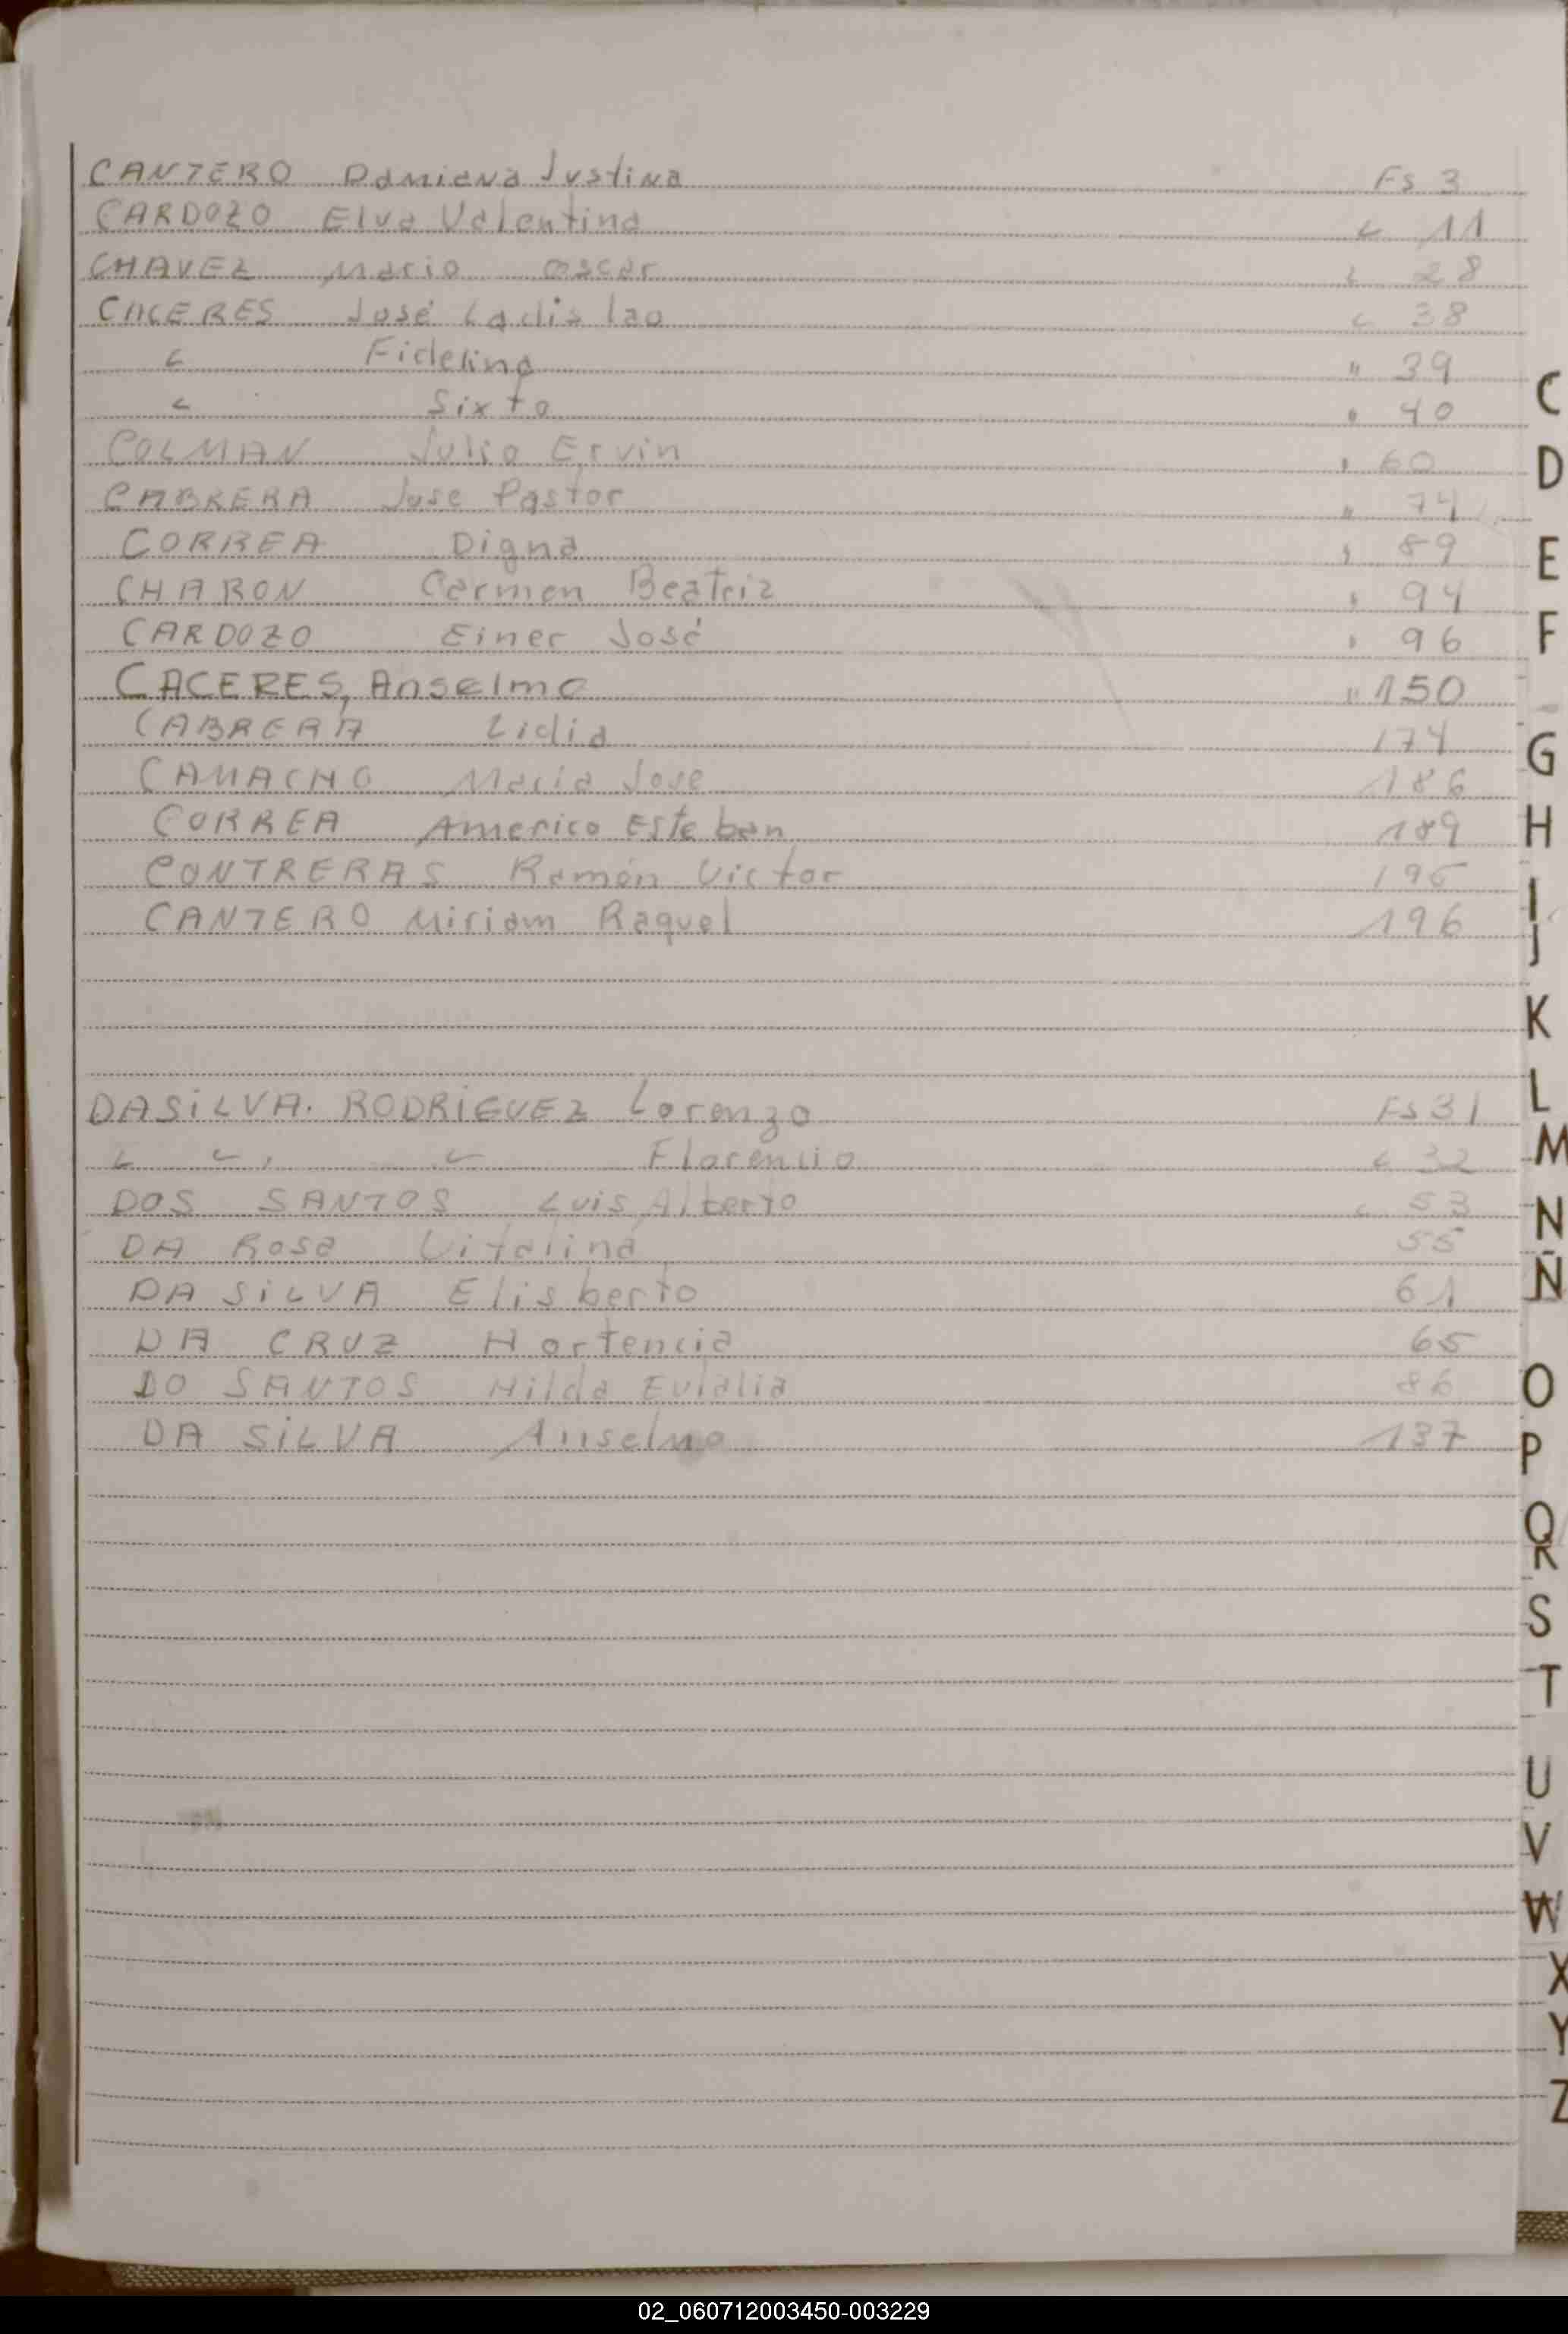 CANTERO Damiana Justina Fs 3
CARDOZO Elva Valentina " 11
CHAVEZ Mario Oscar " 28
CACERES José Ladislao " 38
" Fidelino " 39
" Sixto " 40
COLMAN Julio Ervin " 60
CABRERA Jose Pastor " 74
CORREA Digna " 89
CHARON Carmen Beatriz " 94
CARDOZO Einer José " 96
CACERES, Anselmo " 150
CABRERA Lidia 174
CAMACHO Maria Jose 186
CORREA Americo Esteban 189
CONTRERAS Ramón Victor 195
CANTERO Miriam Raquel 196
DASILVA. RODRIGUEZ Lorenzo Fs 31
" " " Florencio " 32
DOS SANTOS Luis Alberto " 53
DA Rosa Vitalina 55
DA SILVA Elisberto 61
DA CRUZ Hortencia 65
DO SANTOS Hilda Eulalia 86
DA SILVA Anselmo 137
C
D
E
F
G
H
I
J
K
L
M
N
Ñ
O
P
Q
R
S
T
U
V
W
X
Y
Z
02_060712003450-003229